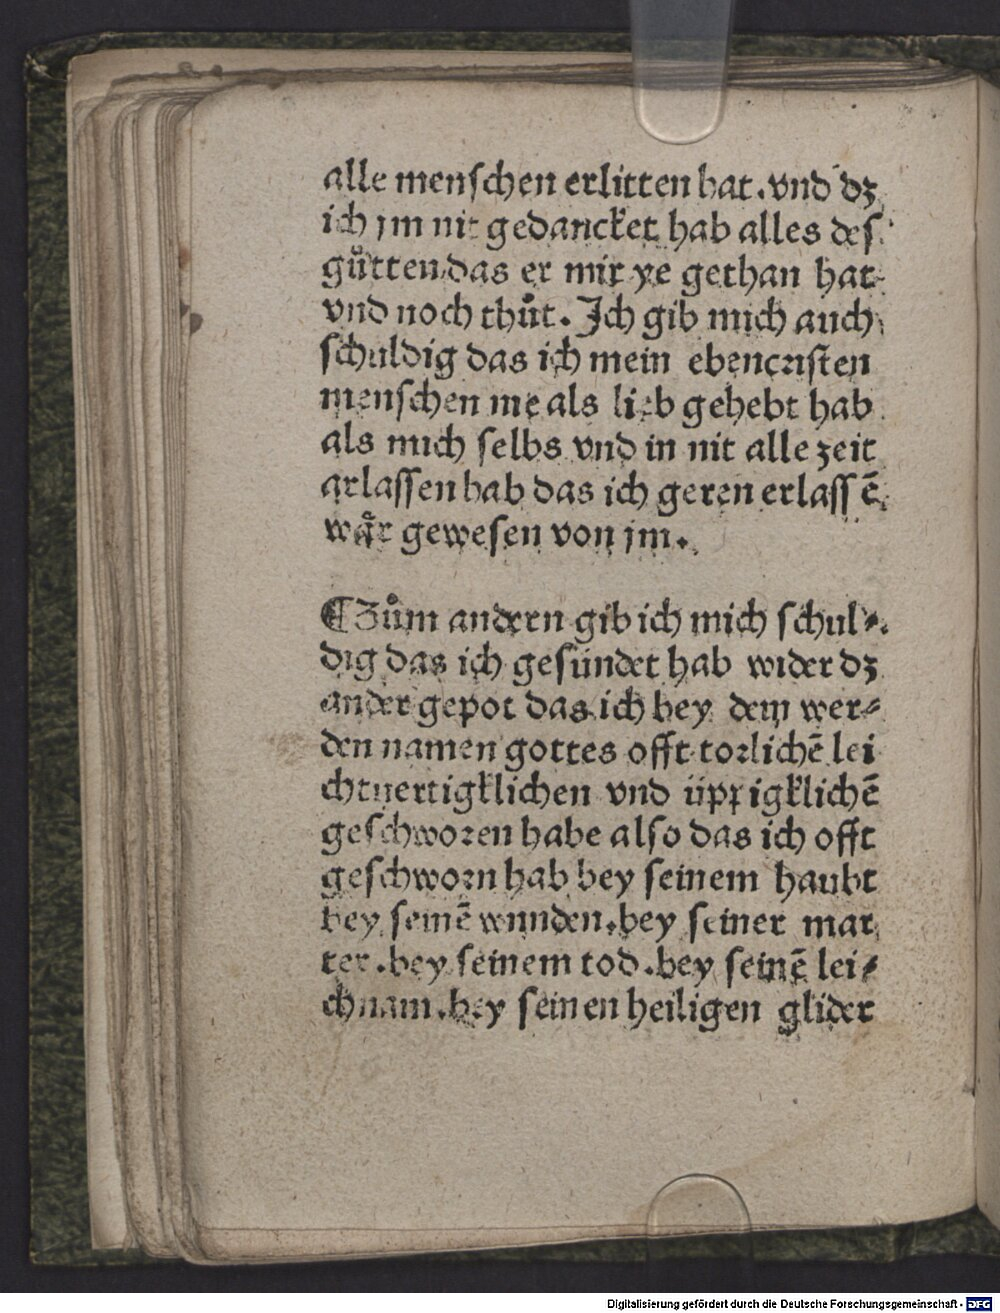 alle menschen erlitten hat. vnd dz
ich jm nit gedancket hab alles des
gůtten das er mir ye gethan hat
vnd noch thůt. Jch gib mich auch
schuldig das ich mein ebencristen
menschen nie als lieb gehebt hab
als mich selbs vnd in nit alle zeit
erlassen hab das ich geren erlassē
wår gewesen von jm.
¶ Zům andern gib ich mich schul⸗
dig das ich gesündet hab wider dz
ander gepot das ich bey dem wer⸗
den namen gottes offt torlichē lei
chtuertigklichen vnd üppigklichē
geschworen habe also das ich offt
geschworn hab bey seinem haubt
bey seinē wunden. bey seiner mar
ter. bey seinem tod. bey seinē lei⸗
chnam. bey seinen heiligen glider
Digitalisierung gefördert durch die Deutsche Forschungsgemeinschaft - DFG